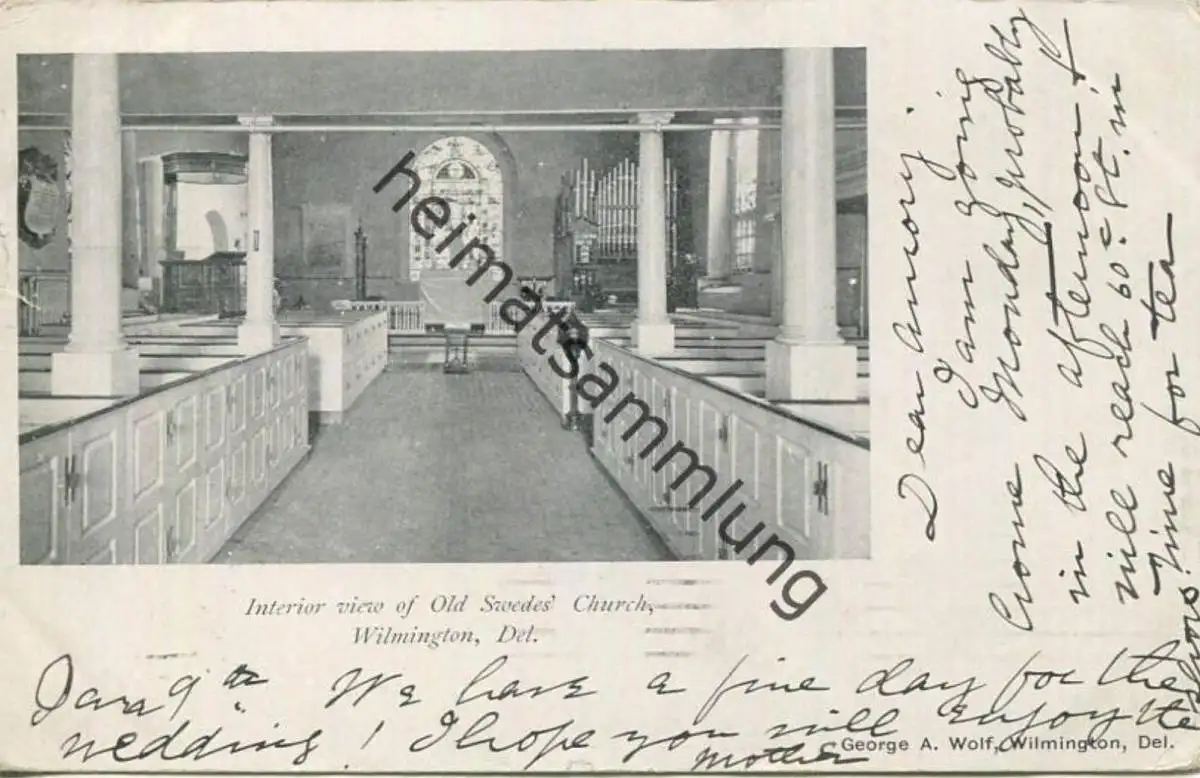 Interior view of Old Swedes' Church,
Wilmington, Del.
Dear Amory.
I am going
Come Monday, probably
in the afternoon &
will reach 60 ft. in
time for tea
Jan 9th. We have a fine day for the
wedding! I hope you will enjoy the
Mother
George A. Wolf, Wilmington, Del.
heimatsammlung